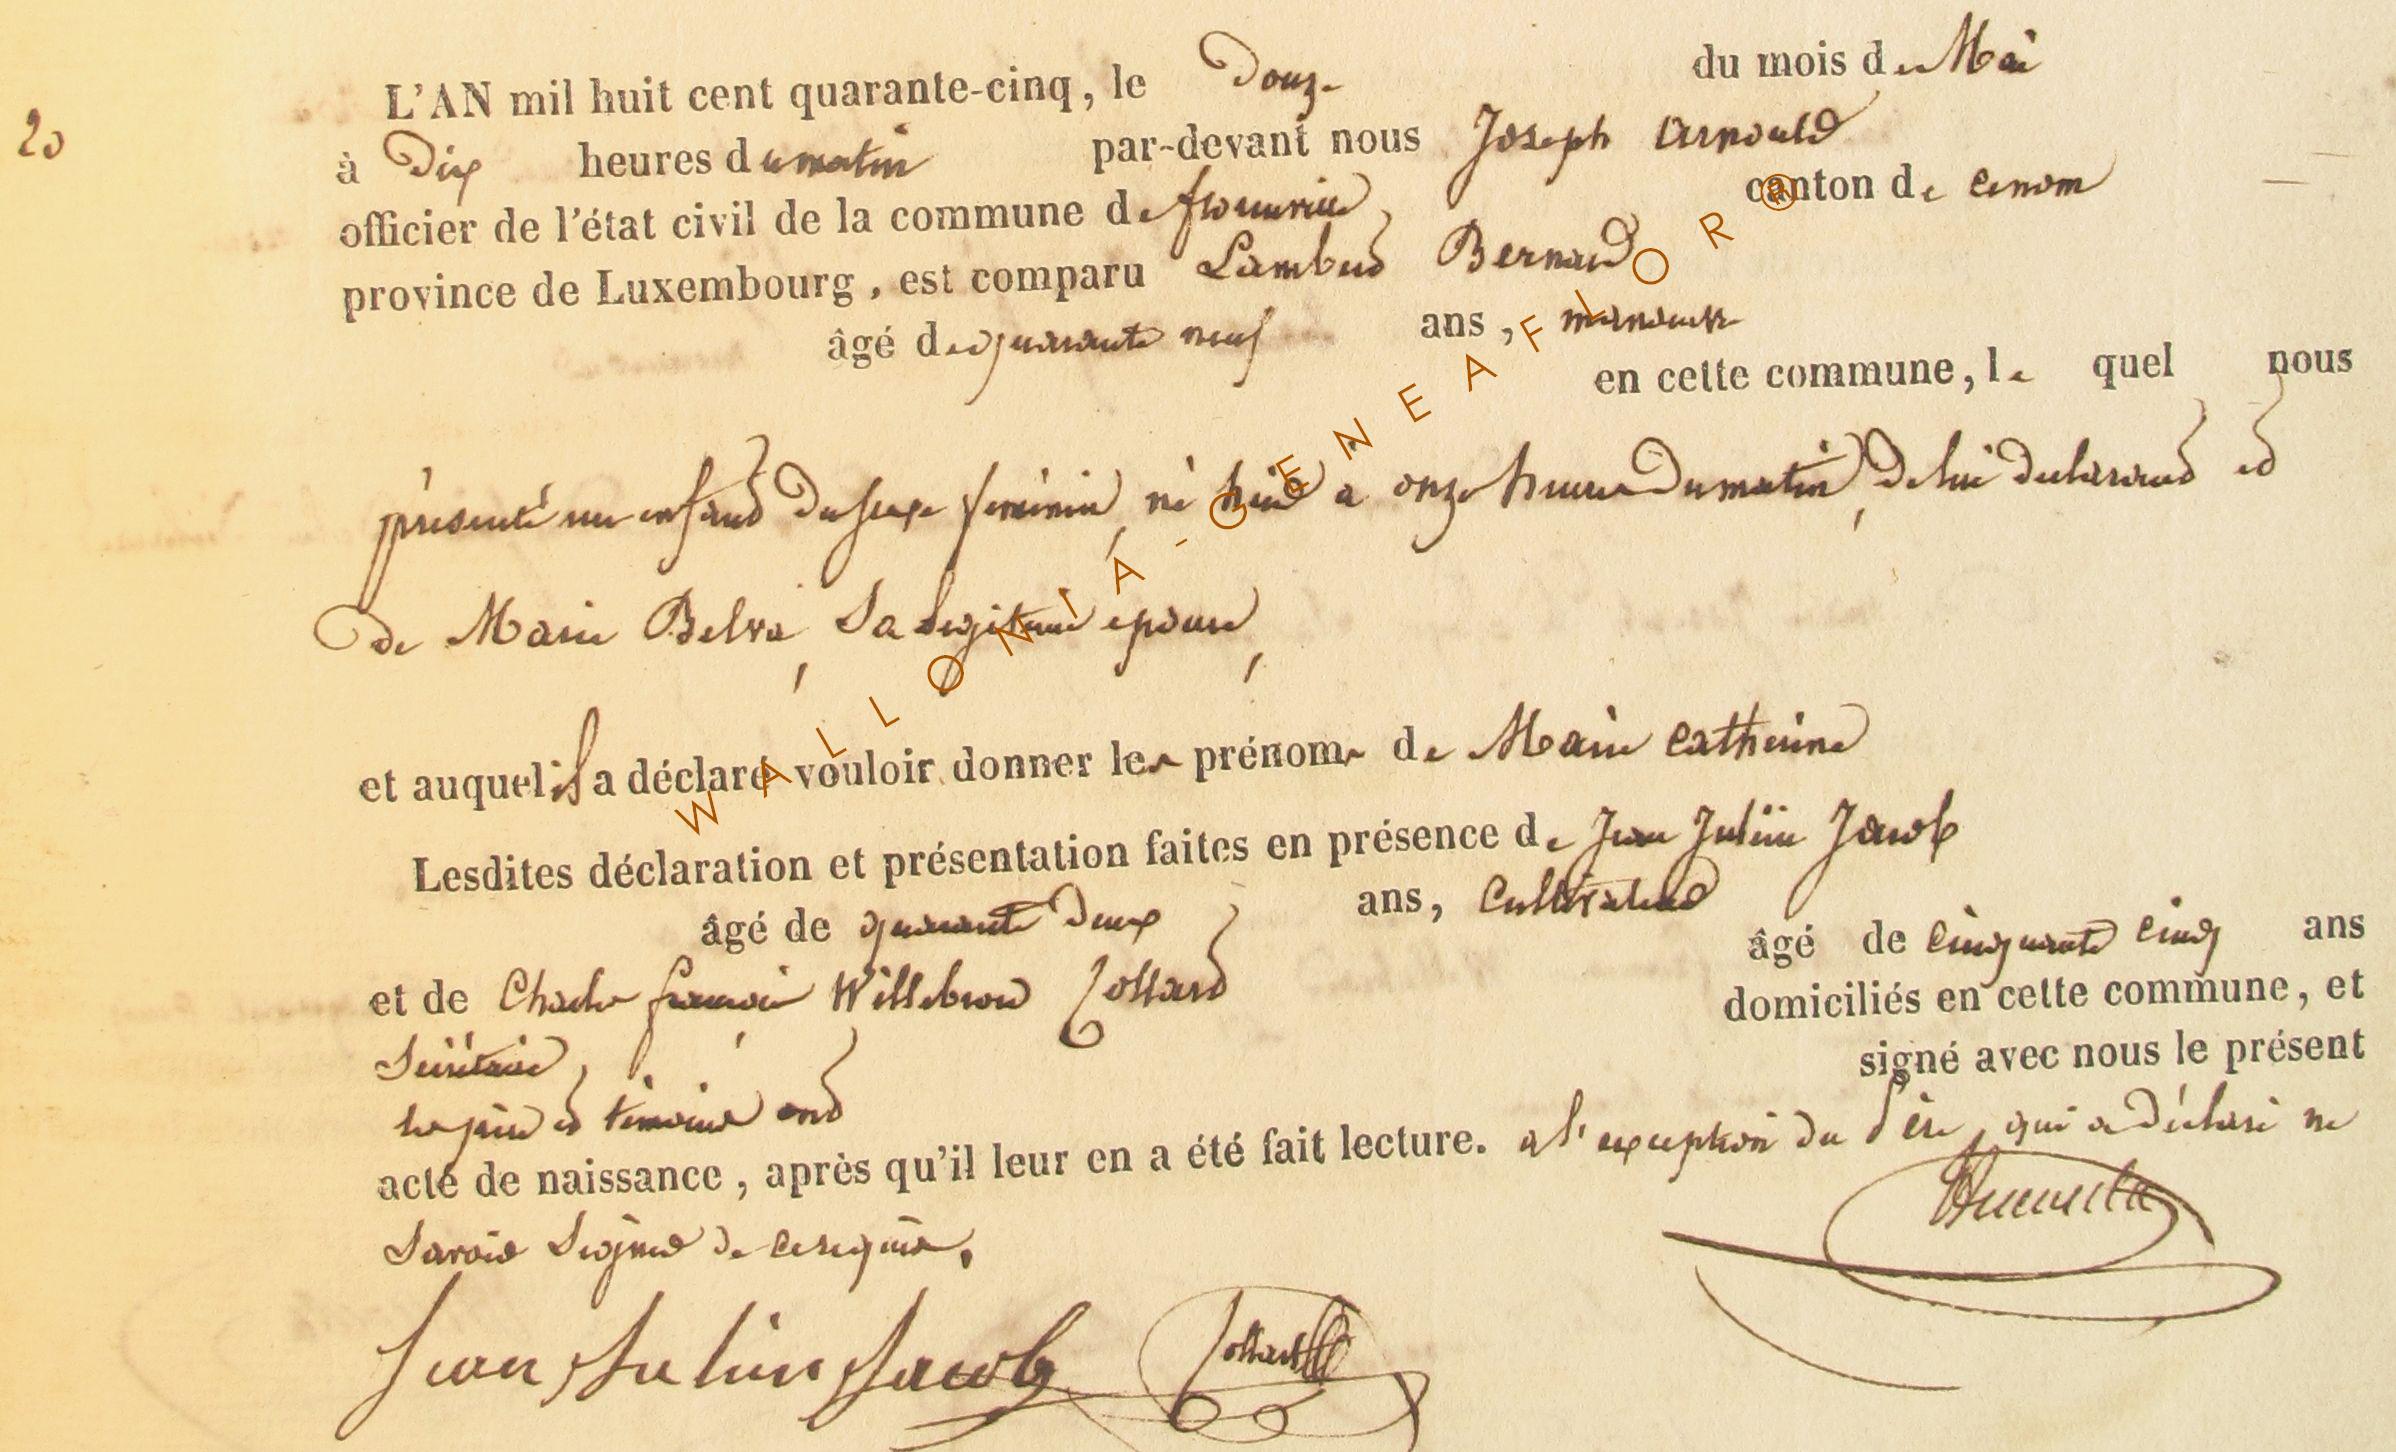 20
L'AN mil huit cent quarante-cinq, le Douze du mois de Mai
à Dix heures du matin par-devant nous Joseph Arnould
officier de l'état civil de la commune de flonville, canton de
province de Luxembourg, est comparu Lambert Bernard
âgé de quarante neuf ans, manoeuvre
en cette commune, le quel nous
présenté un enfant du sexe feminin, né hier a onze heures du matin, de lui declarant et
de Marie Belva, Sa Legitime epouse,
et auquel il a déclaré vouloir donner les prénoms de Marie Catherine
Lesdites déclaration et présentation faites en présence de Jean Julien Jacob
âgé de quarante Deux ans, Cultivateur
et de Charles françois Willebrord Collard âgé de cinquante cinq ans
Secrétaire, domiciliés en cette commune, et
les père et témoins ont signé avec nous le présent
acte de naissance, après qu'il leur en a été fait lecture. a l'exception du Père, qui a déclaré ne
Savoir Signer de ce requis.
Jean Julien Jacob Collard
WALLONIA-GENEAFLOR®